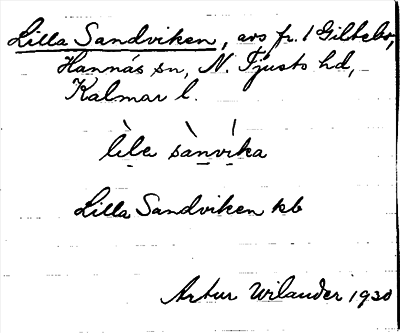 Lilla Sandviken, avs fr. 1 Giltebo,
Hannäs sn, N. Tjusts hd,
Kalmar l.
lìle sànvíka
Lilla Sandviken kb
Artur Wilander 1930